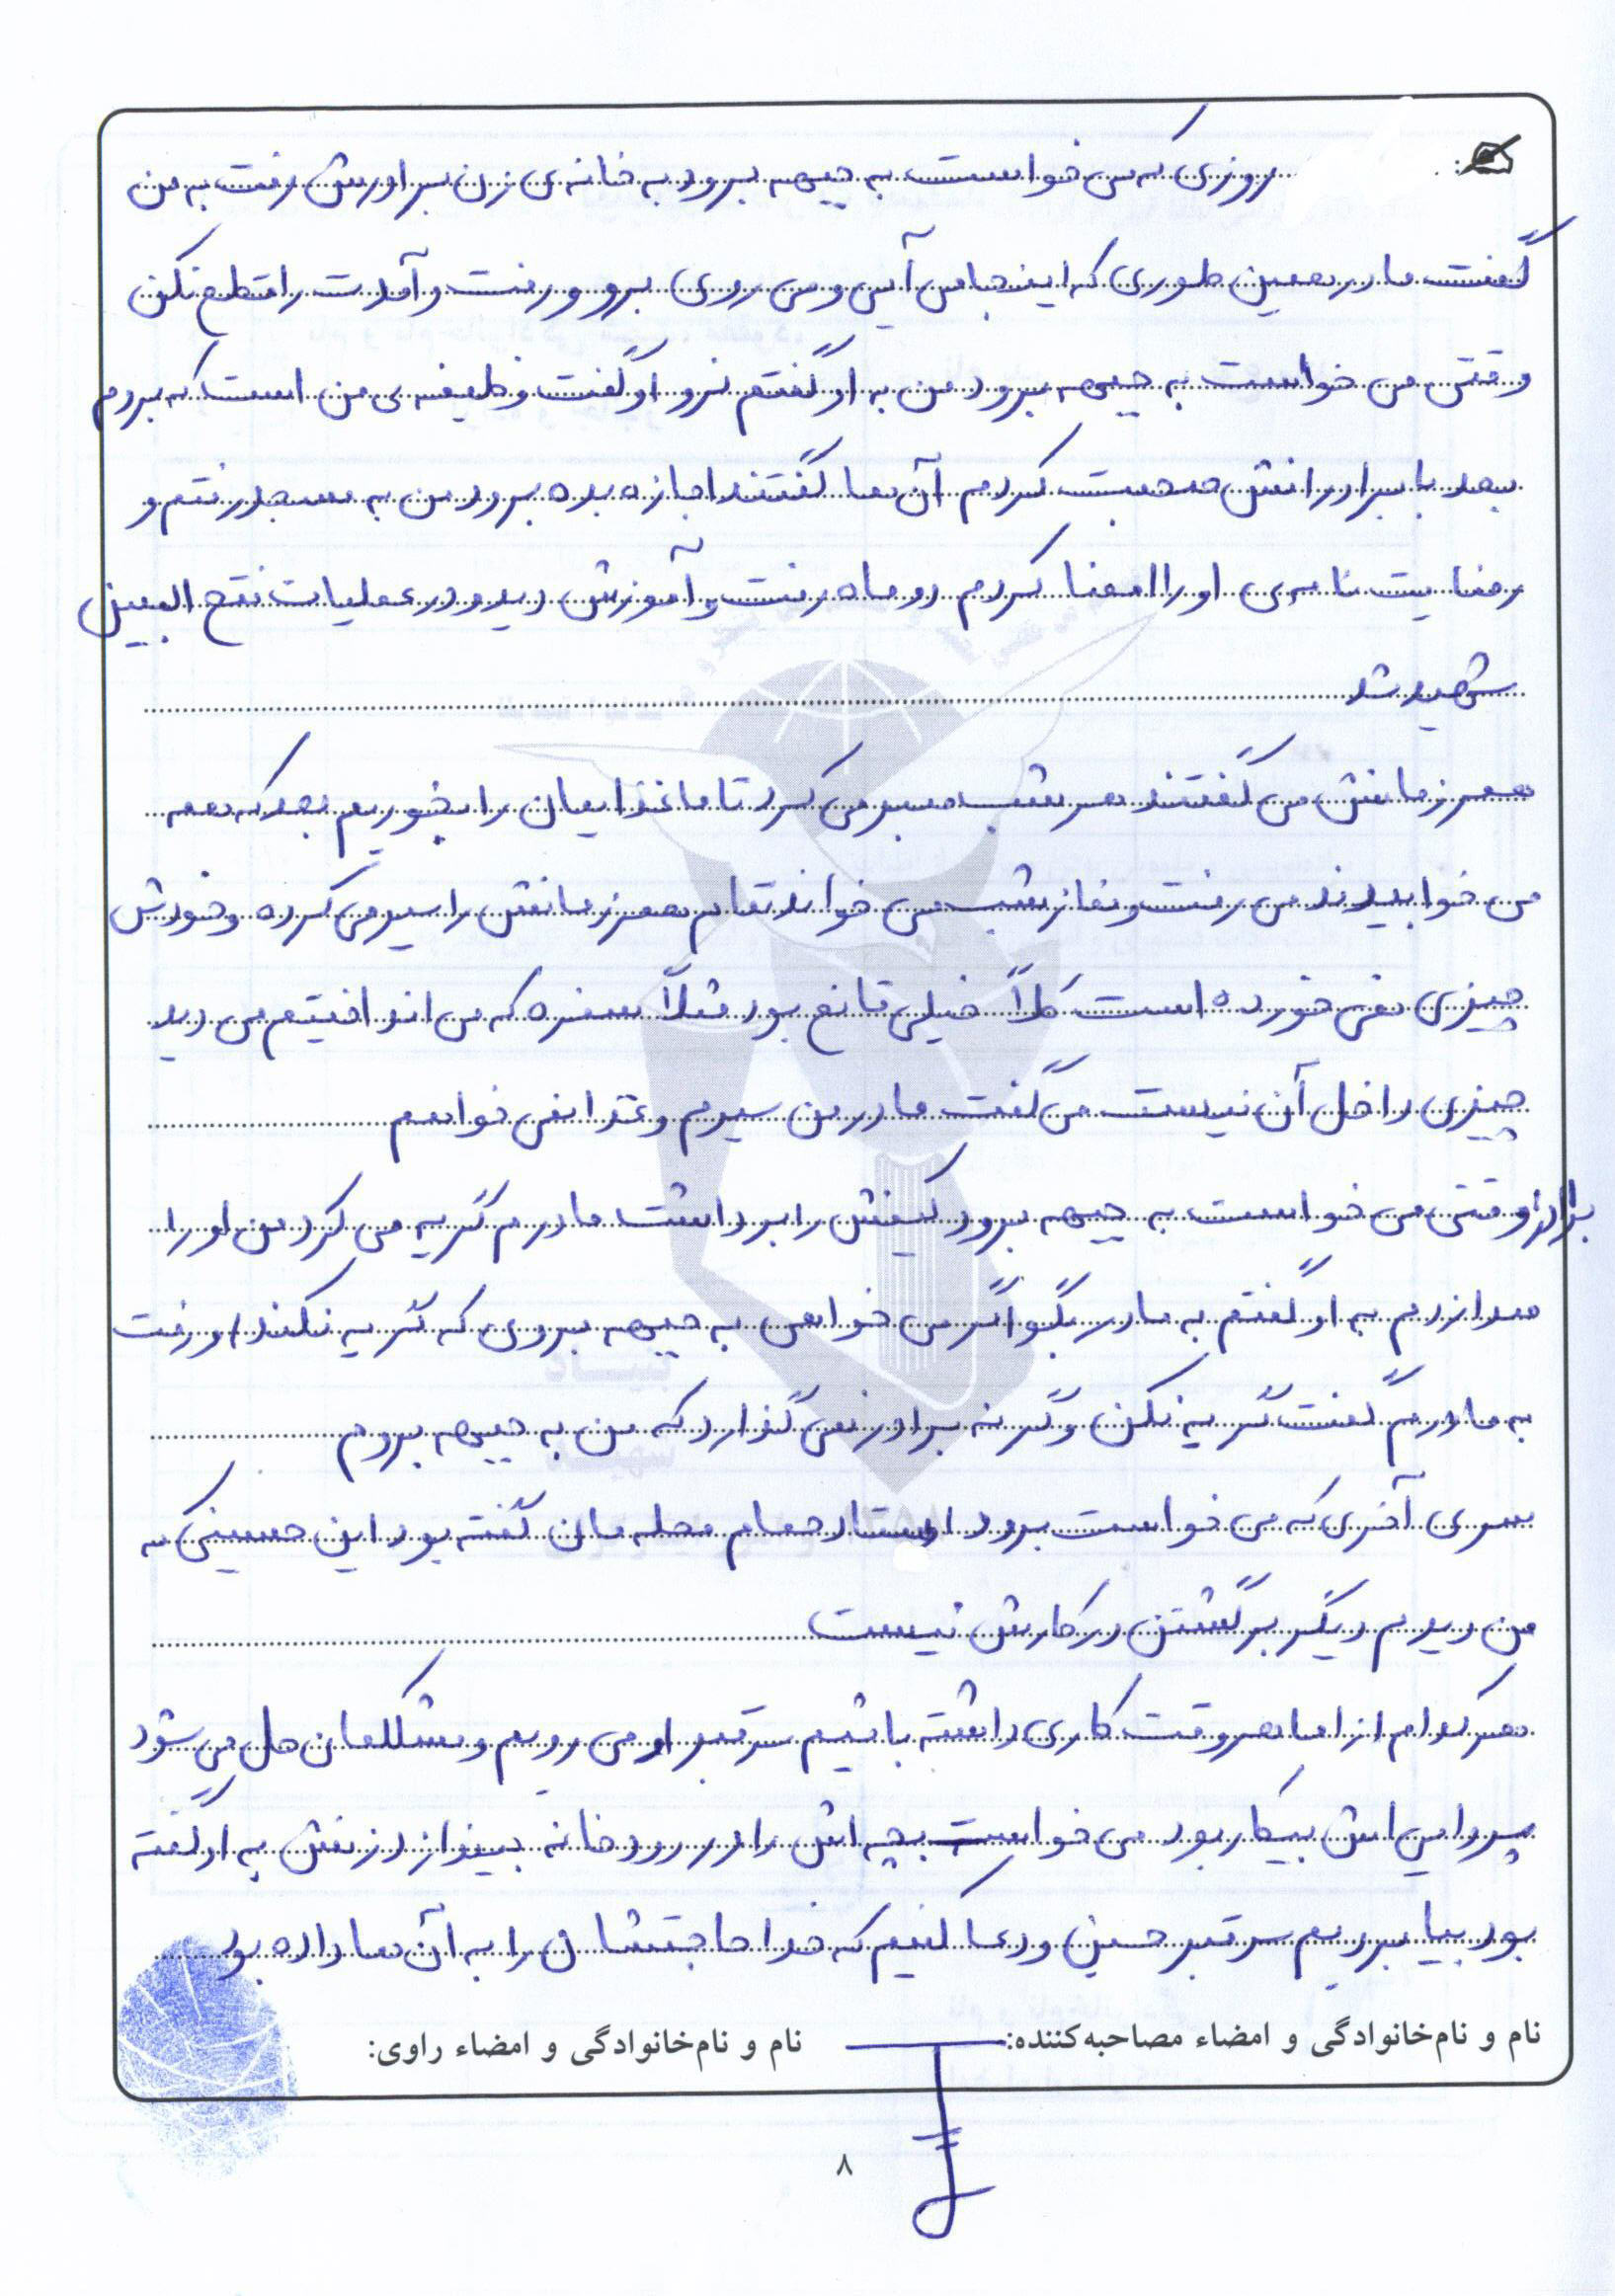 روزی که می خواست به جبهه برود به خانه ی زن برادرش رفت به من
گفت مادر همین طوری که اینجا می آیی و می روی برو و رفت و آمدت را قطع نکن
وقتی می خواست به جبهه برود من به او گفتم نرو او گفت وظیفه ی من است که بروم
بعد با برادرانش صحبت کردم آن ها گفتند اجازه بده برود من به مسجد رفتم و
رضایت نامه ی او را امضا کردم دو ماه رفت و آموزش دید و در عملیات فتح المبین
شهید شد
همرزمانش می گفتند هر شب صبر می کرد تا ما غذایمان را بخوریم بعد که همه
می خوابیدند می رفت و نماز شب می خواند تمام همرزمانش را سیر می کرده و خودش
چیزی نمی خورده است کلاً خیلی قانع بود مثلاً سفره که می انداختیم می دید
چیزی داخل آن نیست می گفت مادر من سیرم و غذا نمی خواهم
برادر: وقتی می خواست به جبهه برود کیفش را برداشت مادرم گریه می کرد من او را
صدا زدم به او گفتم به مادر بگو اگر می خواهی به جبهه بروی که گریه نکند او رفت
به مادرم گفت گریه نکن وگرنه برادر نمی گذارد که من به جبهه بروم
سری آخری که می خواست برود استاد حمام محله مان گفته بود این حسینی که
من دیدم دیگر برگشتن در کارش نیست
هر کدام از ما هر وقت کاری داشته باشیم سر قبر او می رویم و مشکلمان حل می شود
پسر دایی اش بیکار بود می خواست بچه اش را در رودخانه بیندازد زنش به او گفته
بود بیا برویم سر قبر حسین و دعا کنیم که خدا حاجتشان را به آن ها داده بود
نام و نام‌خانوادگی و امضاء مصاحبه‌کننده: نام و نام‌خانوادگی و امضاء راوی:
۸